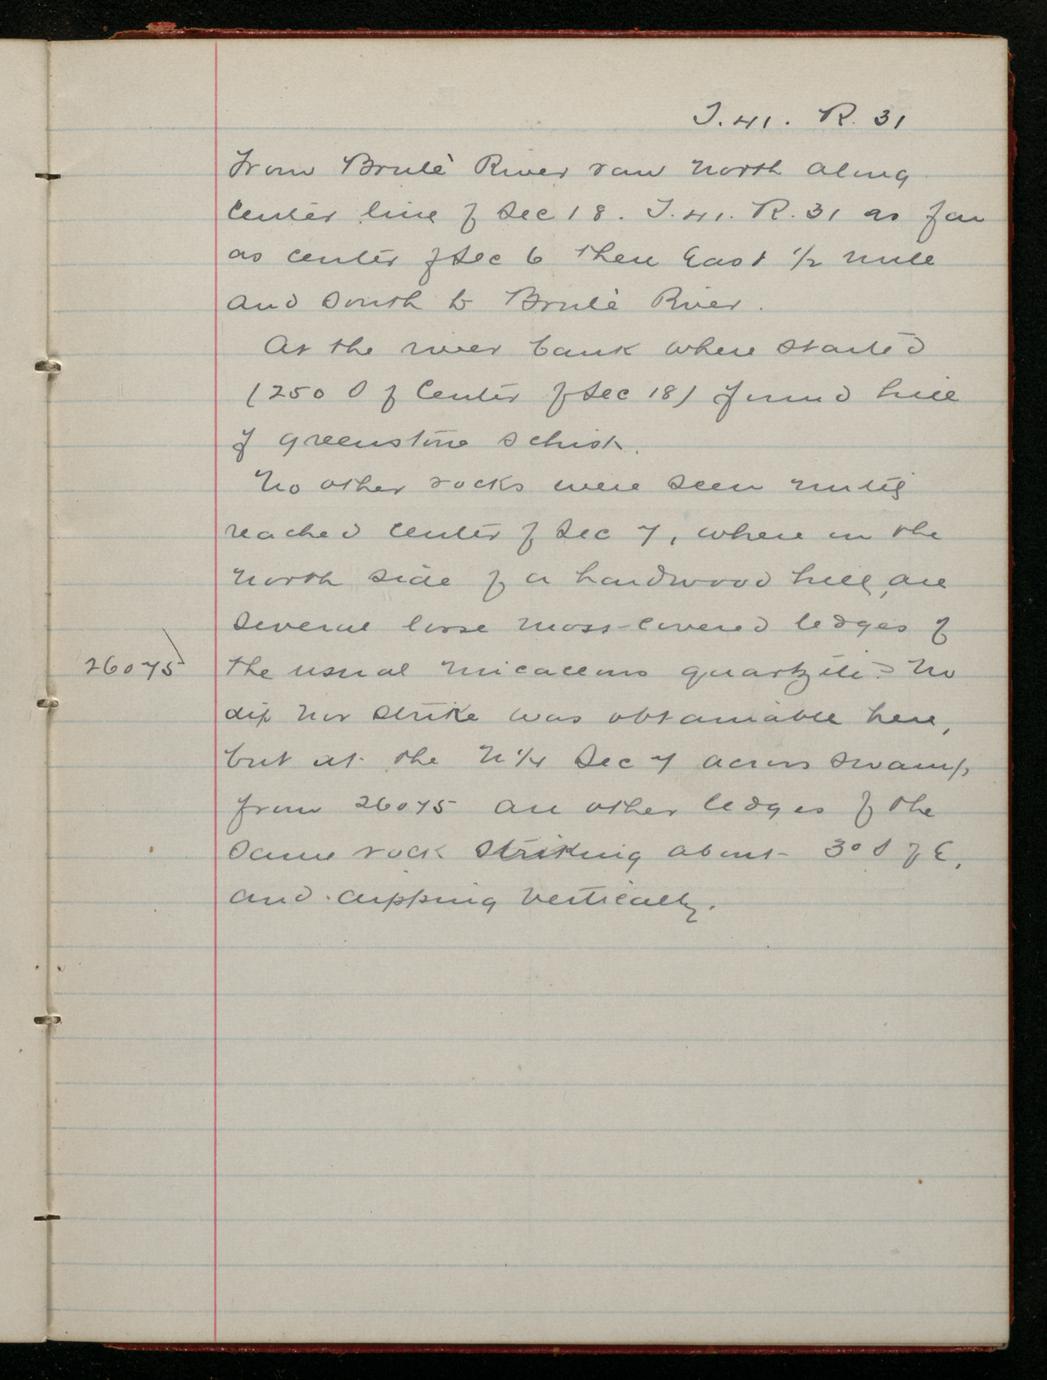 T. 41. R. 31
From Brulé River ran North along
Center line of Sec 18. T. 41. R. 31 as far
as center of Sec 6 then East 1/2 mile
and South to Brulé River.
At the river bank where started
(250 S of Center of Sec 18) found hill
of greenstone schist.
No other rocks were seen until
reached center of Sec 7, where on the
North side of a hardwood hill, are
several loose moss-covered ledges of
26075 the usual micaceous quartzite. No
dip nor strike was obtainable here,
but at the N 1/4 Sec 7 across swamp
from 26075 are other ledges of the
same rock striking about 3° S of E,
and dipping vertically.